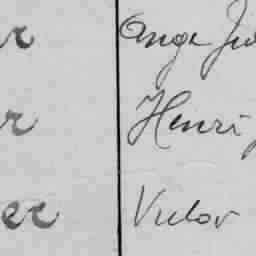 r Ange
r Henri
ec Victor